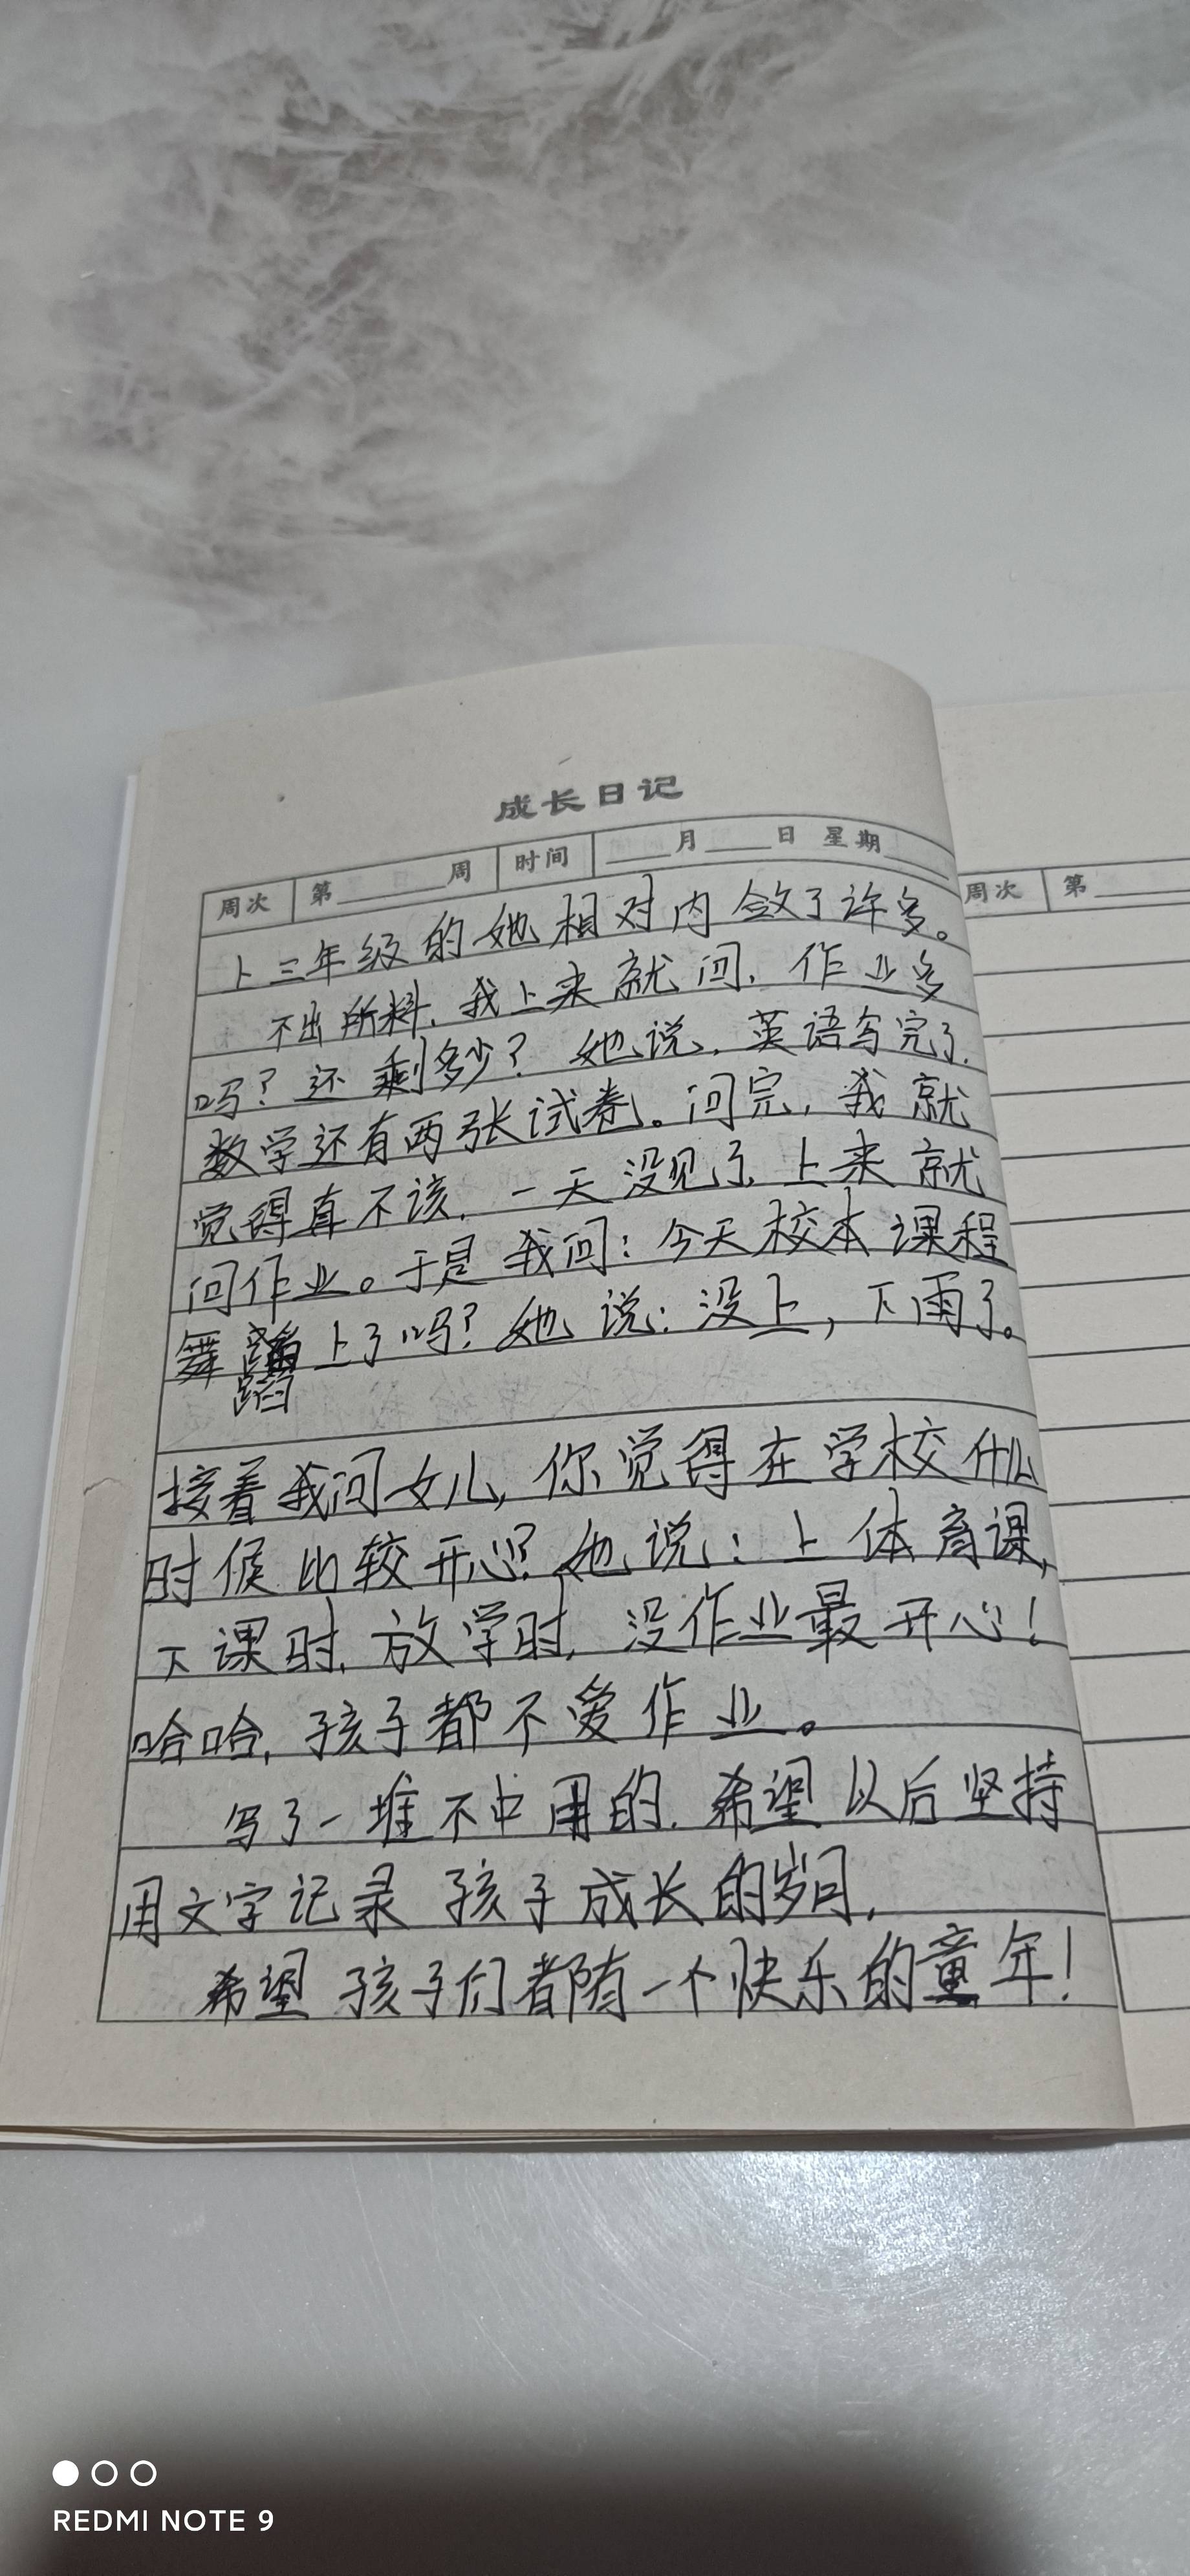 成长日记
周次 第____周 时间 ____月____日 星期____
周次 第____
上三年级的她相对内敛了许多。
不出所料,我上来就问,作业多
吗?还剩多少?她说,英语写完了,
数学还有两张试卷。问完,我就
觉得真不该,一天没见了,上来就
问作业。于是我问:今天校本课程
舞蹈上了吗?她说:没上,下雨了。
接着我问女儿,你觉得在学校什么
时候比较开心?她说:上体育课,
下课时,放学时,没作业最开心!
哈哈,孩子都不爱作业。
写了一堆不中用的,希望以后坚持
用文字记录孩子成长的岁月,
希望孩子们都有一个快乐的童年!
REDMI NOTE 9